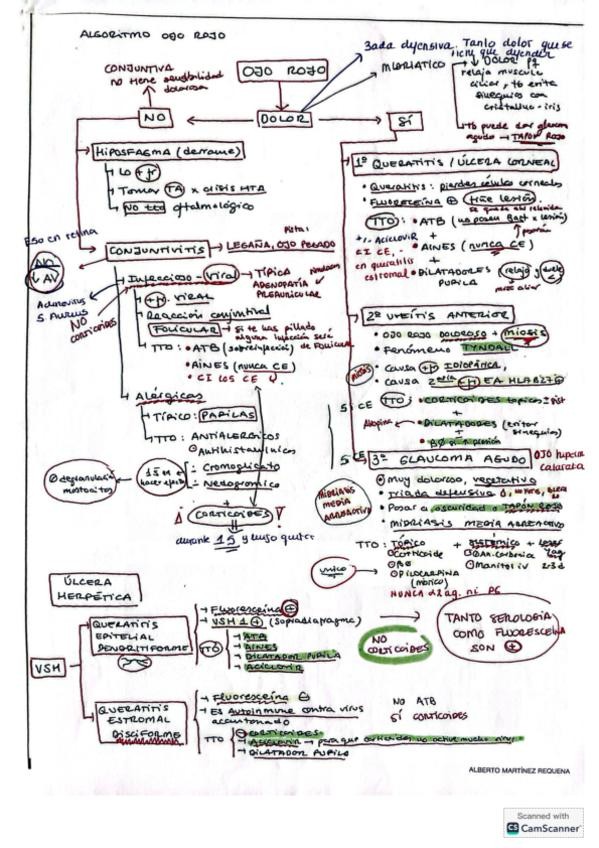 ALGORITMO OJO ROJO
CONJUNTIVA
NO TIENE sensibilidad
dolorosa
OJO ROJO
MIDRIÁTICO
Tríada defensiva. Tanto dolor que se
tiene que defender
↓ DOLOR pq
relaja musculo
ciliar, tb evita
sinequias con
cristalino-iris
tb puede dar glaucoma
agudo → TAPÓN ROJO
NO
DOLOR
SÍ
HIPOSFAGMA (derrame)
Lo + fr
Tomar TA x crisis HTA
NO tto oftalmológico
1º QUERATITIS / ÚLCERA CORNEAL
• Queratitis: pierdes células corneales
• FLUORESCEÍNA ⊕ Tiñe lesión.
TTO: • ATB (no pasen Bact x lesión)
+/- ACICLOVIR +
CI CE,
en queratitis
estromal
• AINES (nunca CE)
+
• DILATADORES
PUPILA
Eso en retina
↓ AV
CONJUNTIVITIS → LEGAÑA, OJO PEGADO
Pista:
Infeccioso - Viral → TÍPICA
ADENOPATÍA
PREAURICULAR
Adenovirus
S Aureus
NO
CORTICOIDES
+ fr. VIRAL
Reacción conjuntival
FOLICULAR → Si te has pillado
alguna infección será
de Folicular
TTO: • ATB (sobreinfección)
• AINES (nunca CE)
• CI LOS CE
2º UVEÍTIS ANTERIOR
• OJO ROJO DOLOROSO + MIOSIS
• Fenómeno TYNDALL
• Causa + fr IDIOPÁTICA,
• Causa 2aria + fr EA HLAB27⊕
SÍ CE
TTO: • CORTICOIDES tópicos ± Sist
+
Atropina
• DILATADORES (evitar
sinequias)
+
• ΒΘ si ↑ presión
Alérgicas
Típico: PAPILAS
TTO: ANTIALÉRGICOS
Antihistamínicos
= Cromoglicato
= Nedocromilo
⊖ degranulación
mastocitos
15 d
hacer efecto
+
CORTICOIDES
durante 15 y luego quitar
SÍ CE
3º GLAUCOMA AGUDO
OJO hipermetrope
catarata
MIDRIASIS
MEDIA
ARREACTIVA
• Muy doloroso, vegetativo
• Tríada defensiva
• Pasar a oscuridad o TAPÓN ROJO
• MIDRIASIS MEDIA ARREACTIVA
TTO: TÓPICO + SISTÉMICO +
Corticoide
ΒΘ
PILOCARPINA
(miótico)
An. Carbónica
Manitol iv
único
NUNCA α2 ag. ni PG
ÚLCERA
HERPÉTICA
VSH
QUERATITIS
EPITELIAL
DENDRITIFORME
Fluoresceína ⊕
VSH 1 ⊕ (Supradiafragma)
TTO
ATB
AINES
DILATADOR PUPILA
ACICLOVIR
NO
CORTICOIDES
TANTO SEROLOGÍA
COMO FLUORESCEÍNA
SON ⊕
QUERATITIS
ESTROMAL
DISCIFORME
Fluoresceína ⊖
Es Autoinmune contra virus
acantonado
NO ATB
SÍ CORTICOIDES
TTO
CORTICOIDES
Aciclovir → para que corticoides no active mucho virus
DILATADOR PUPILA
ALBERTO MARTÍNEZ REQUENA
Scanned with
CS CamScanner